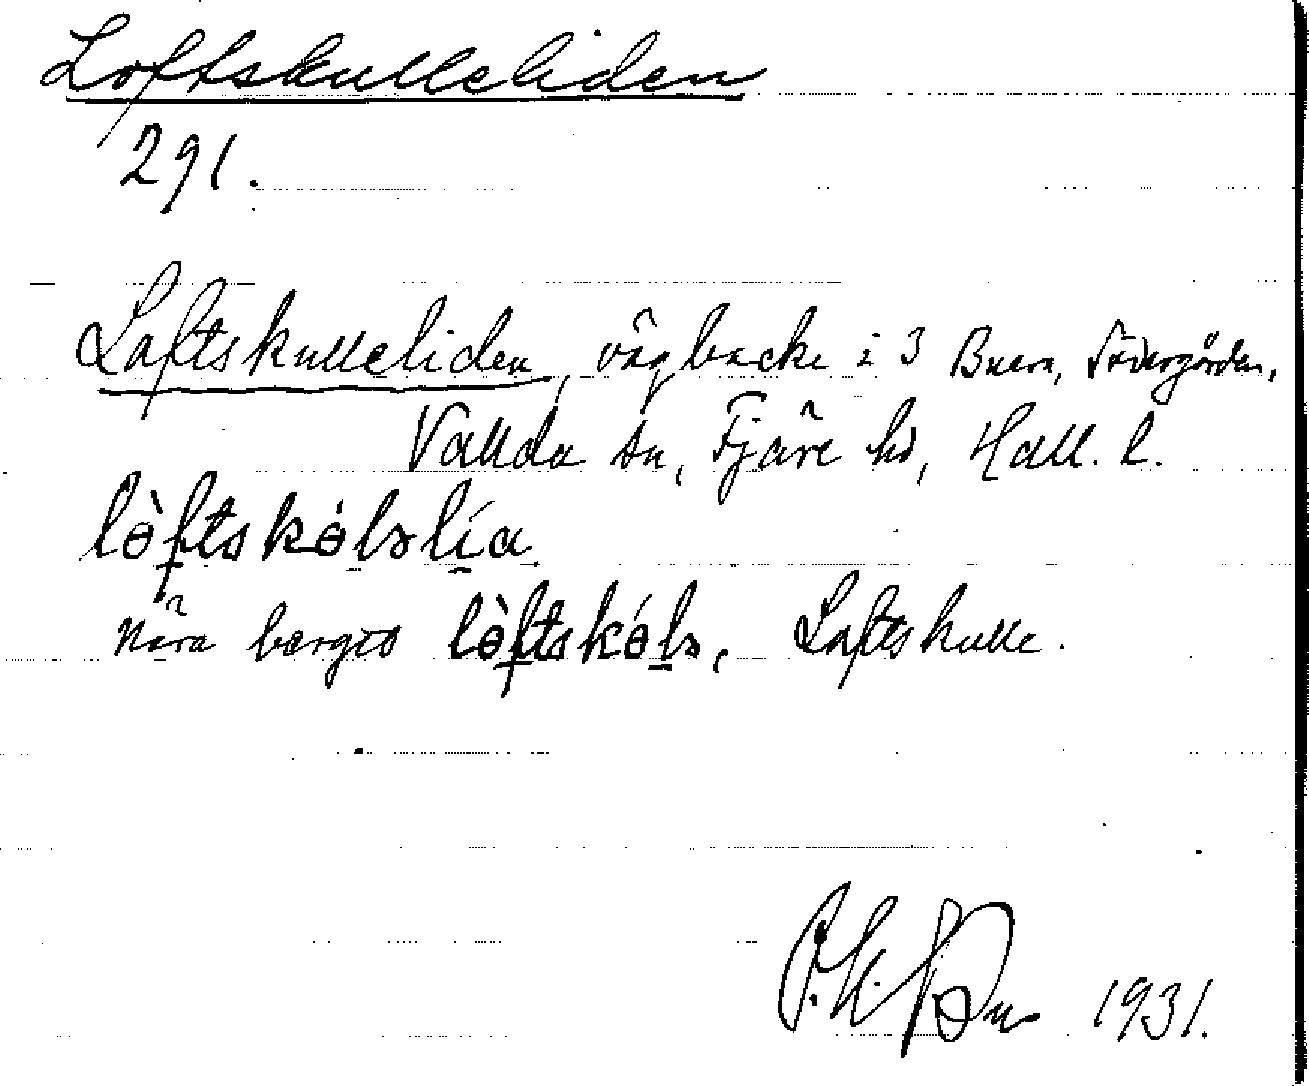 Loftskulleliden
291.
Laftskulleliden, vägbacke i 3 Buera, Södergården,
Vallda sn, Fjäre hd, Hall. l.
lòftskólslía
Nära berget lòftskóls, Laftskulle.
1931.